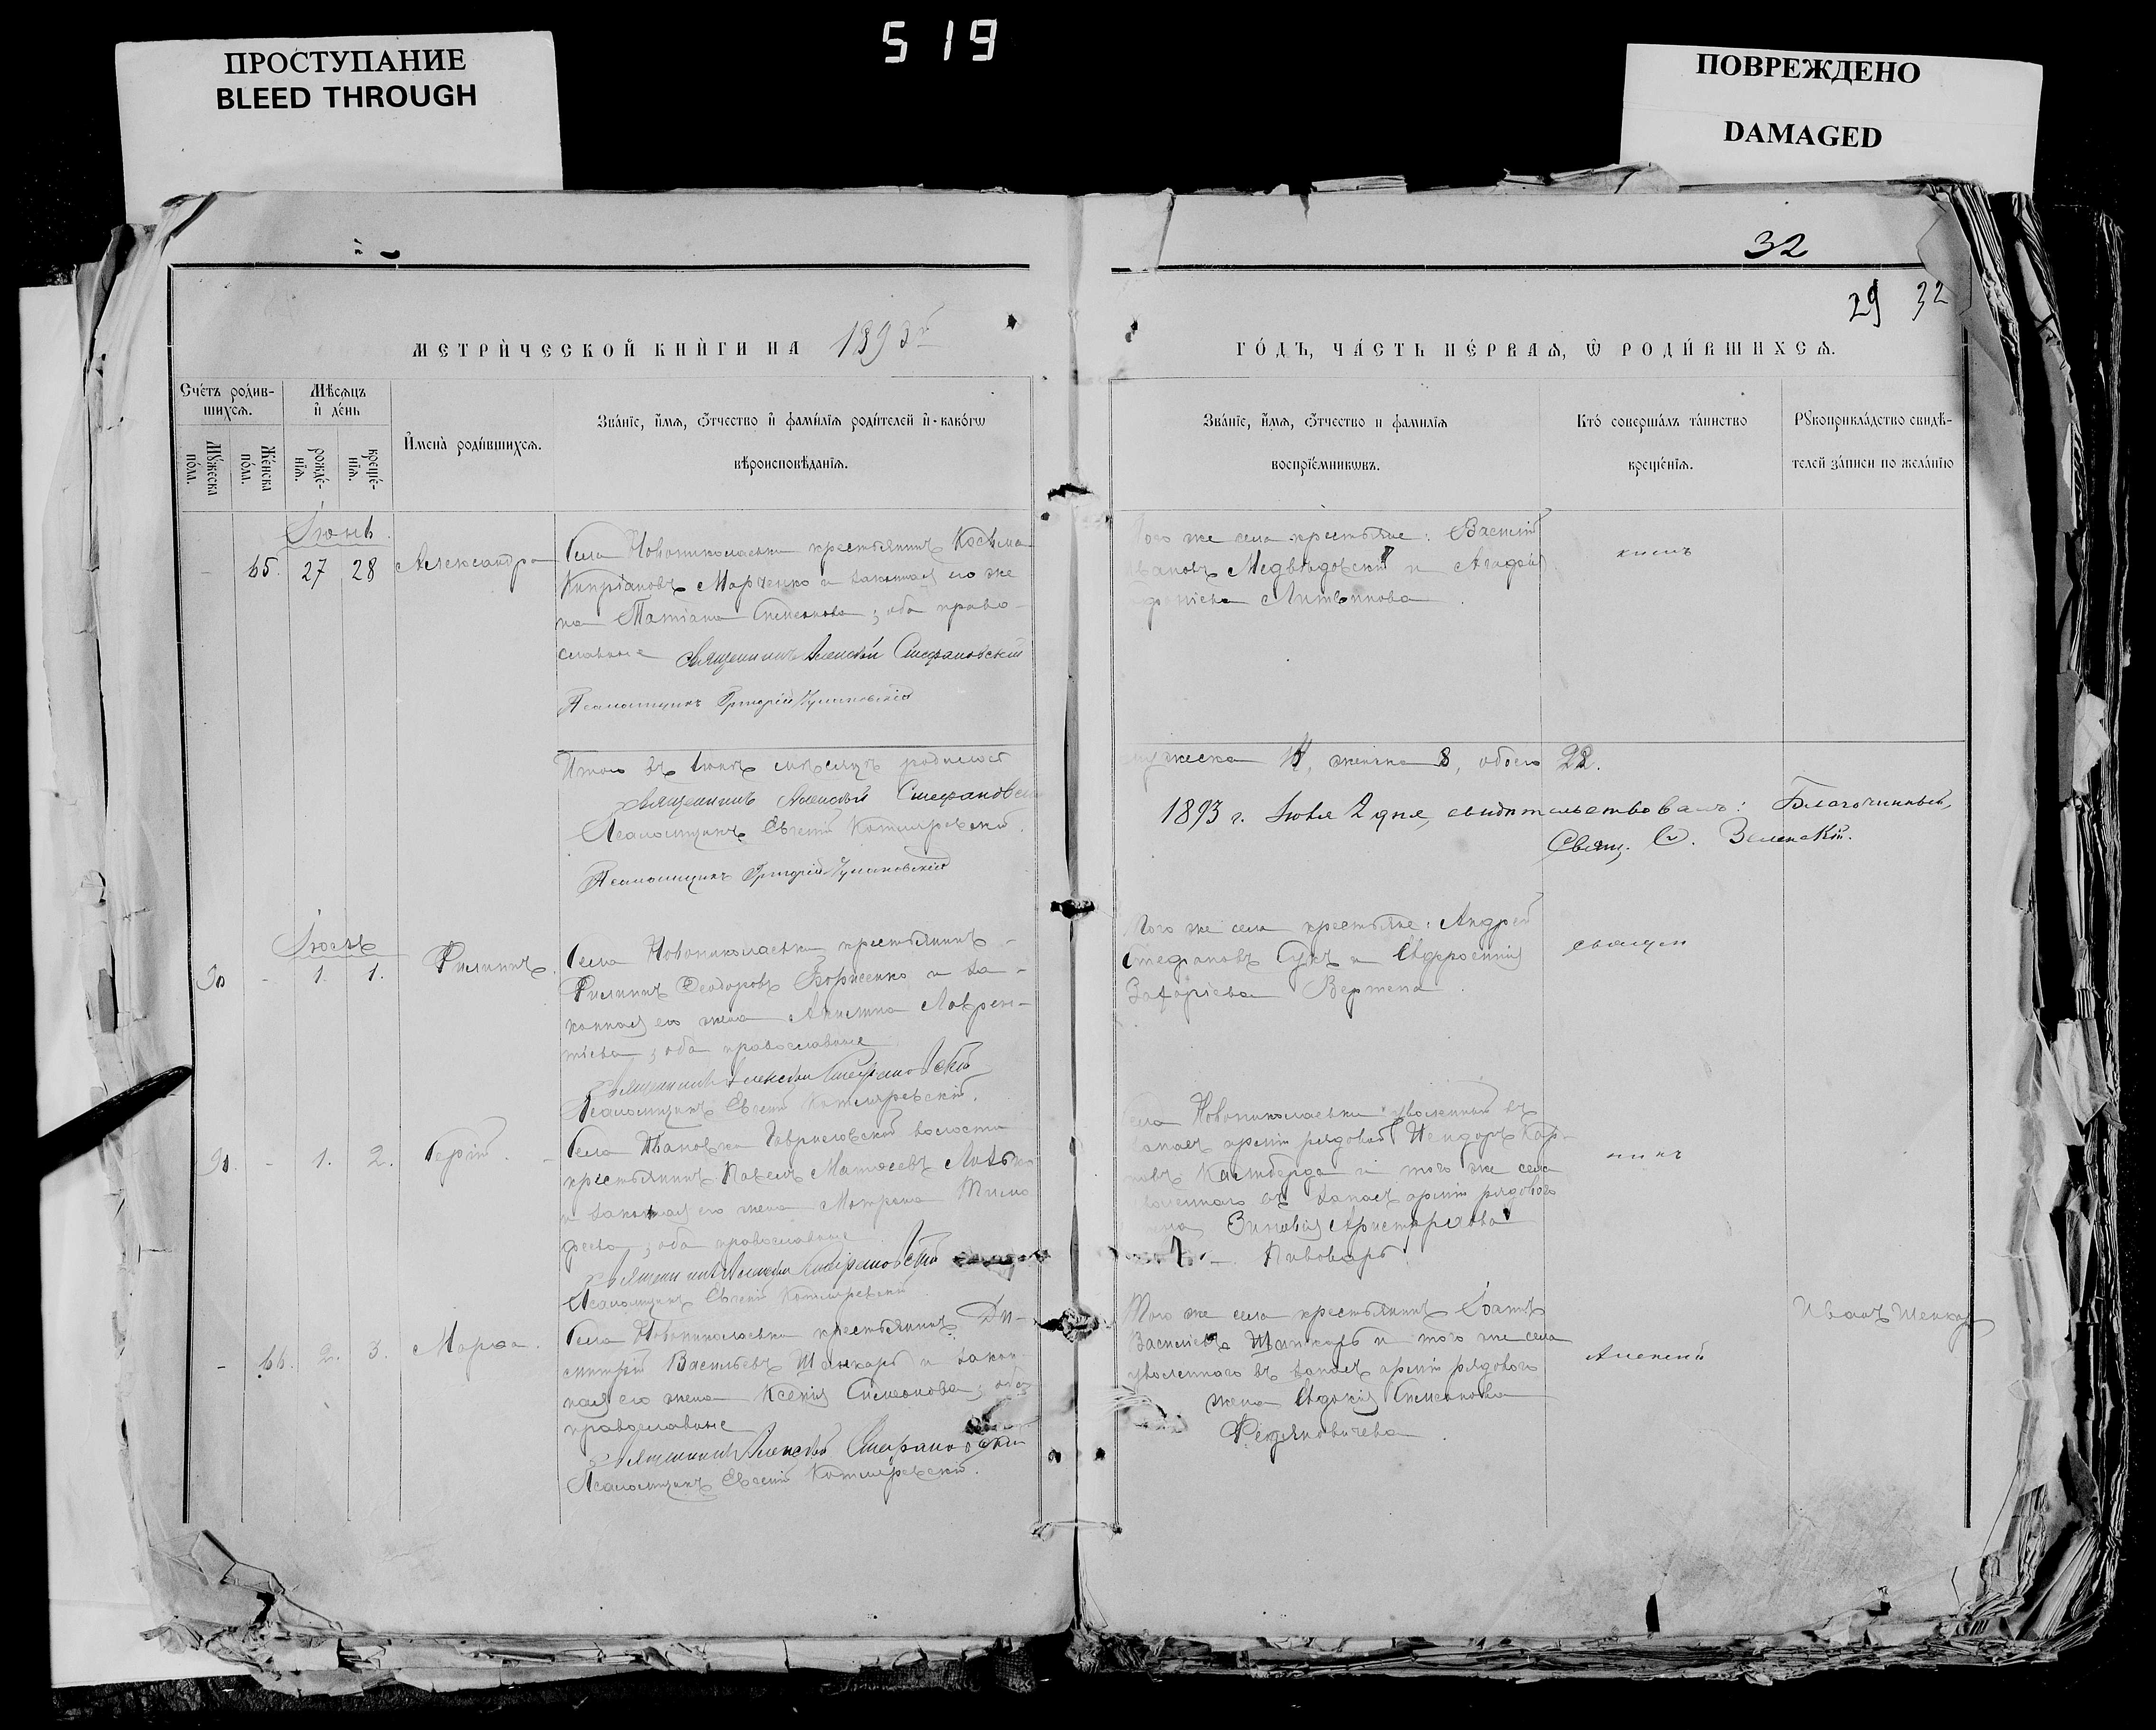 519
ПРОСТУПАНИЕ
BLEED THROUGH
ПОВРЕЖДЕНО
DAMAGED
32
29 32
МЕТРИ́ЧЕСКОЙ КНИ́ГИ НА 1893й
ГО́ДЪ, ЧА́СТЬ ПЕ́РВАЯ, Ѿ РОДИ́ВШИХСЯ.
Сче́тъ роди́в-
шихся.
Мѣ́сяцъ
и҆ де́нь
Мꙋ́жеска
по́ла.
Же́нска
по́ла.
рожде́-
нїя.
креще́-
нїя.
И҆мена̀ роди́вшихся.
Зва́нїе, и҆́мя, ѻ҆́тчество и҆ фамі́лїя роди́телей и҆ како́гѡ
вѣроисповѣ́данїя.
Зва́нїе, и҆́мя, ѻ҆́тчество и фамилїя
воспрїе́мникѡвъ.
Кто̀ соверша́лъ та́инство
креще́нїя.
Рꙋкоприкла́дство свидѣ́-
телей за́писи по жела́нїю
Іюнь
65. 27 28 Александра
Села Новониколаевки крестьянинъ Косьма
Кипріановъ Марченко и законная его же
на Татіана Симеонова; оба право-
славные Священникъ Алексѣй Стефановскій
Псаломщикъ Григорій
Того же села крестьяне: Василій
Ивановъ Медвѣдовскій и Агафія
Литвинова
никъ
Итого въ Іюнѣ мѣсяцѣ родилось
Священникъ Алексѣй Стефановскій
Псаломщикъ Евгеній Котляревскій.
Псаломщикъ Григорій
мужеска 14, женска 8, обоего 22.
1893 г. Іюля 2 дня, свидѣтельствовалъ: Благочинный,
Свящ. С. Зеленскій.
Іюль
90 - 1. 1. Филиппъ.
Села Новониколаевки крестьянинъ
Филиппъ Ѳеодоровъ Борисенко и за-
конная его жена Акилина Лаврен-
тіева; оба православные
Священникъ Алексѣй Стефановскій
Псаломщикъ Евгеній Котляревскій.
Того же села крестьяне: Андрей
Стефановъ Сукъ и Евфросинія
Захаріева Вертепа.
священ
91. - 1. 2. Сергій.
Села Ивановка Гавриловской волости
крестьянинъ Павелъ Матѳеевъ
и законная его жена Матрона Тимо
феева; оба православные
Священникъ Алексѣй Стефановскій
Псаломщикъ Евгеній Котляревскій
Села Новониколаевки уволенный въ
запасъ арміи рядовой Исидоръ Кар-
повъ Калиберда и того же села
уволеннаго въ запасъ арміи рядового
жена Зиновія Аристархова
Пивоваръ.
никъ
- 66. 2. 3. Марѳа.
Села Новониколаевки крестьянинъ Ди-
митрій Васильевъ Шинкарь и закон-
ная его жена Ксенія Симеонова; оба
православные
Священникъ Алексѣй Стефановскій
Псаломщикъ Евгеній Котляревскій.
Того же села крестьянинъ Іоаннъ
Васильевъ Шинкарь и того же села
уволеннаго въ запасъ арміи рядового
жена Евдокія Симеонова
Федяновичева.
Алексѣй
Иванъ Шенкар